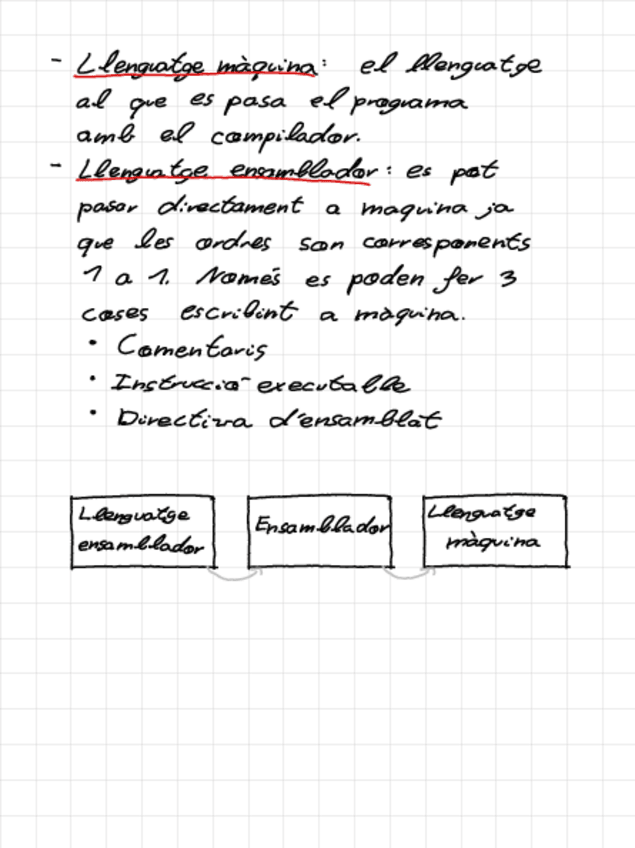 - Llenguatge màquina: el llenguatge
al que es pasa el programa
amb el compilador.
- Llenguatge ensamblador: es pot
pasar directament a maquina ja
que les ordres son corresponents
1 a 1. Només es poden fer 3
coses escribint a màquina.
• Comentaris
• Instrucció executable
• Directiva d'ensamblat
Llenguatge
ensamblador
Ensamblador
Llenguatge
màquina